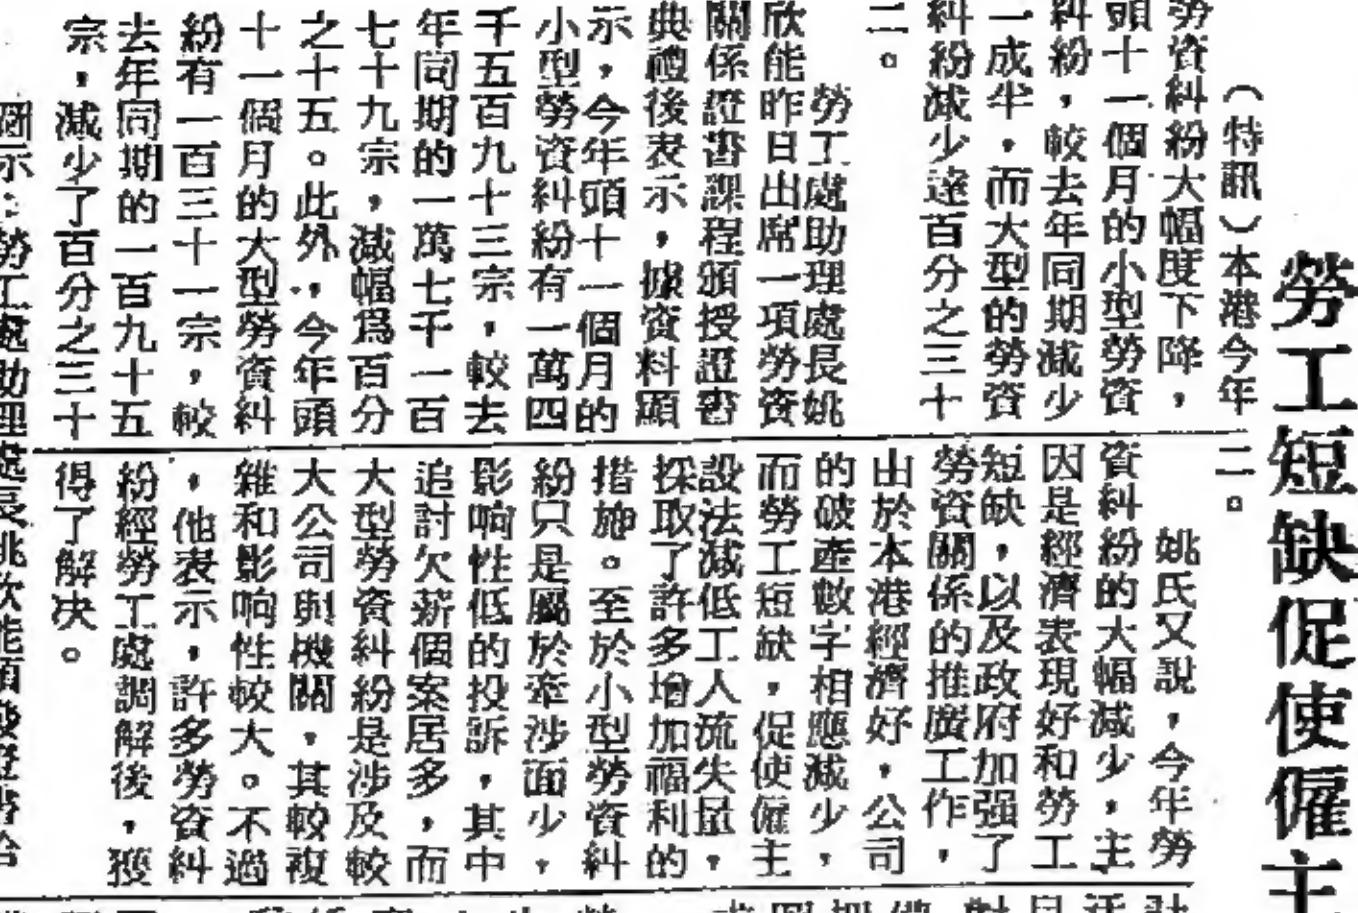 勞工短缺促使僱主
（特訊）本港今年
勞資糾紛大幅度下降，
頭十一個月的小型勞資
糾紛，較去年同期減少
一成半，而大型的勞資
糾紛減少達百分之三十
二。
勞工處助理處長姚
欣能昨日出席一項勞資
關係證書課程頒授證書
典禮後表示，據資料顯
示，今年頭十一個月的
小型勞資糾紛有一萬四
千五百九十三宗，較去
年同期的一萬七千一百
七十九宗，減幅爲百分
之十五。此外，今年頭
十一個月的大型勞資糾
紛有一百三十一宗，較
去年同期的一百九十五
宗，減少了百分之三十
二。
姚氏又說，今年勞
資糾紛的大幅減少，主
因是經濟表現好和勞工
短缺，以及政府加强了
勞資關係的推廣工作，
出於本港經濟好，公司
的破產數字相應減少，
而勞工短缺，促使僱主
設法減低工人流失量，
採取了許多增加福利的
措施。至於小型勞資糾
紛只是屬於牽涉面少，
影响性低的投訴，其中
追討欠薪個案居多，而
大型勞資糾紛是涉及較
大公司與機關，其較複
雜和影响性較大。不過
，他表示，許多勞資糾
紛經勞工處調解後，獲
得了解决。
圖示：勞工處助理處長姚欣能頒發證書給